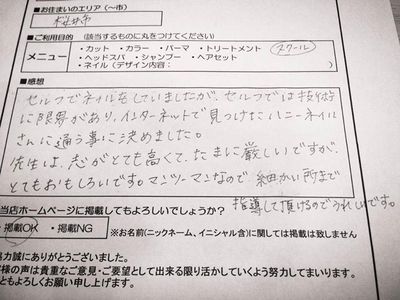 ■お住まいのエリア(~市)
桜井市
■ご利用目的 (該当するものに丸をつけてください)
メニュー
・カット ・カラー ・パーマ ・トリートメント スクール
・ヘッドスパ ・シャンプー ・ヘアセット
・ネイル(デザイン内容:
■感想
セルフでネイルをしていましたが、セルフでは技術
に限界があり、インターネットで見つけたハニーネイル
さんに通う事に決めました。
先生は、志がとても高くて、たまに厳しいですが、
とてもおもしろいです。マンツーマンなので 細かい所まで
指導して頂けるのでうれしいです。
当店ホームページに掲載してもよろしいでしょうか?
・掲載OK ・掲載NG ※お名前(ニックネーム、イニシャル含)に関しては掲載は致しません
協力誠にありがとうございました。
客様の声は貴重なご意見・ご要望として出来る限り活かしていくよう努力してまいります。
ともよろしくお願い申し上げます